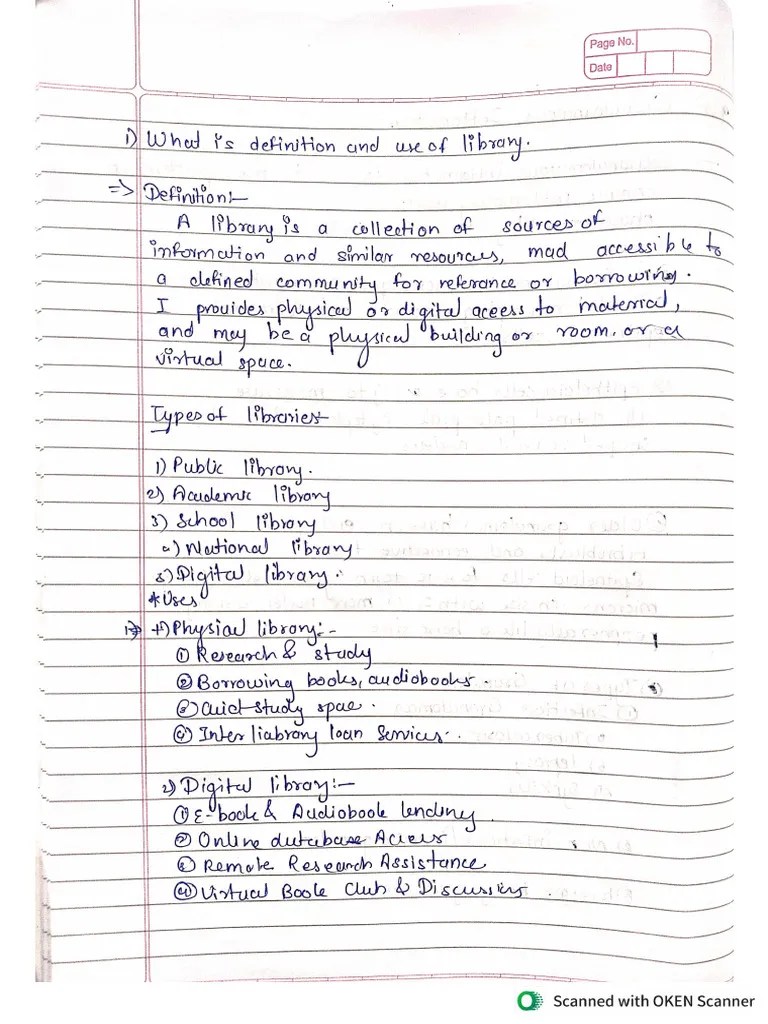 Page No.
Date
1) What is definition and use of library.
=> Definition:-
A library is a collection of sources of
information and similar resources, mad accessible to
a defined community for referance or borrowing.
I provides physical or digital aceess to material,
and may be a physical building or room, or a
virtual space.
Types of libraries-
1) Public library.
2) Academic library
3) School library
4) National library
5) Digital library.
*Uses
1) Physial library:-
① Research & study
② Borrowing books, audiobooks.
③ Quiet study spae.
④ Inter liabrary loan Services.
2) Digital library:-
① E-book & Audiobook lending.
② Online database Access
③ Remote Research Assistance
④ Virtual Book Club & Discussion.
Scanned with OKEN Scanner